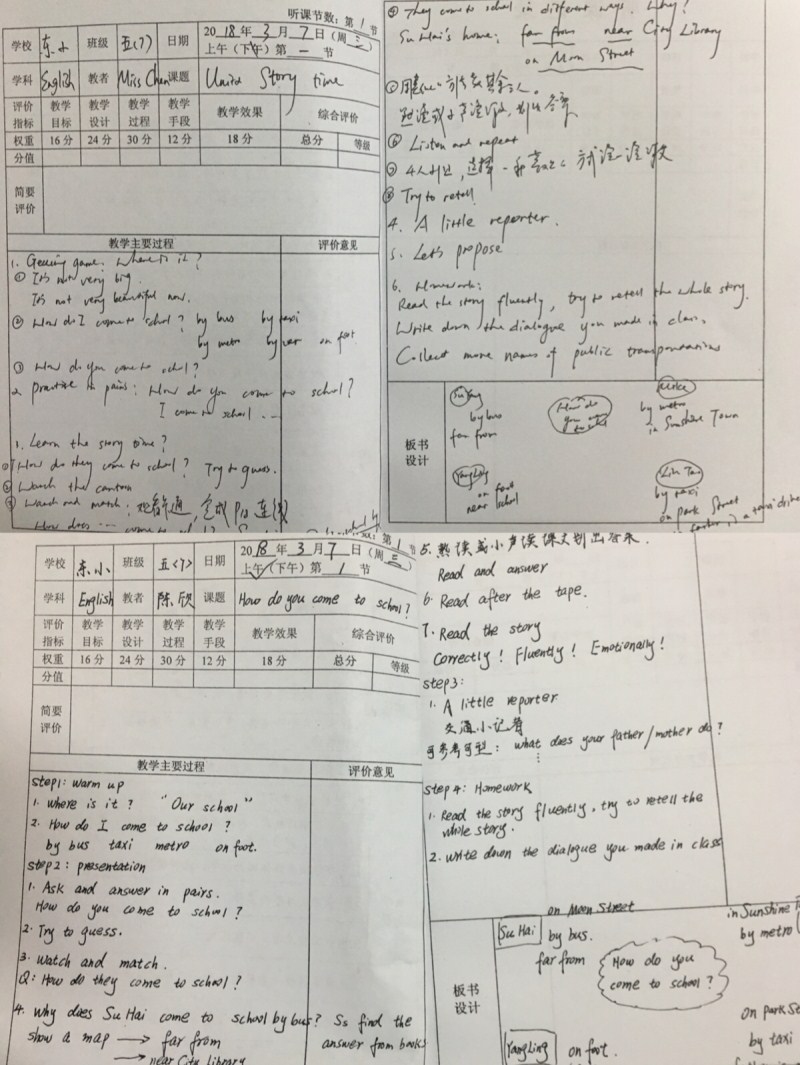 听课节数:第1节
学校 东小 班级 五(7) 日期 2018年3月7日(周三)
上午(下午)第一节
学科 English 教者 Miss Chen 课题 Unit2 Story time
评价指标 教学目标 教学设计 教学过程 教学手段 教学效果 综合评价
权重 16分 24分 30分 12分 18分 总分 等级
分值
简要评价
教学主要过程 评价意见
1. game: Where is it?
① It's not very big
It's not very beautiful now.
② How do I come to school? by bus by taxi
by metro by car on foot
③ How do you come to school?
2. Practise in pairs: How do you come to school?
I come to school ...
1. Learn the story time?
① How do they come to school? Try to guess.
② Watch the cartoon
③ Watch and match:
How does ... come to
④ They come to school in different ways. Why?
Su Hai's home: far from near City Library
on Moon Street
⑥ Listen and repeat
⑦ 4人小组,选择一种喜欢的方式读一读课文
⑧ Try to retell
4. A little reporter.
5. Let's propose
6. Homework:
Read the story fluently, try to retell the whole story.
Write down the dialogue you made in class.
Collect more names of public transportations
板书设计
Su Yang
by bus
far from
How do you come to school
Mike
by metro
in Sunshine Town
Yang Ling
on foot
near school
Liu Tao
by taxi
on Park Street
第1节
学校 东小 班级 五<7> 日期 2018年3月7日(周三)
上午(下午)第1节
学科 English 教者 陈欣 课题 How do you come to school?
评价指标 教学目标 教学设计 教学过程 教学手段 教学效果 综合评价
权重 16分 24分 30分 12分 18分 总分 等级
分值
简要评价
教学主要过程 评价意见
step1: warm up
1. where is it? "Our school"
2. How do I come to school?
by bus taxi metro on foot.
step2: presentation
1. Ask and answer in pairs.
How do you come to school?
2. Try to guess.
3. Watch and match.
Q: How do they come to school?
4. why does Su Hai come to school by bus? Ss find the
show a map → far from answer from books
→ near City Library
5. 默读或小声读课文划出答案.
Read and answer
6. Read after the tape.
7. Read the story
Correctly! Fluently! Emotionally!
step3:
1. A little reporter
交通小记者
可参考句型: what does your father/mother do?
step 4: Homework
1. Read the story fluently, try to retell the
whole story.
2. write down the dialogue you made in class
板书设计
on Moon Street
Su Hai by bus.
far from
How do you
come to school?
in Sunshine
by metro
Yang Ling on foot.
on park St
by taxi